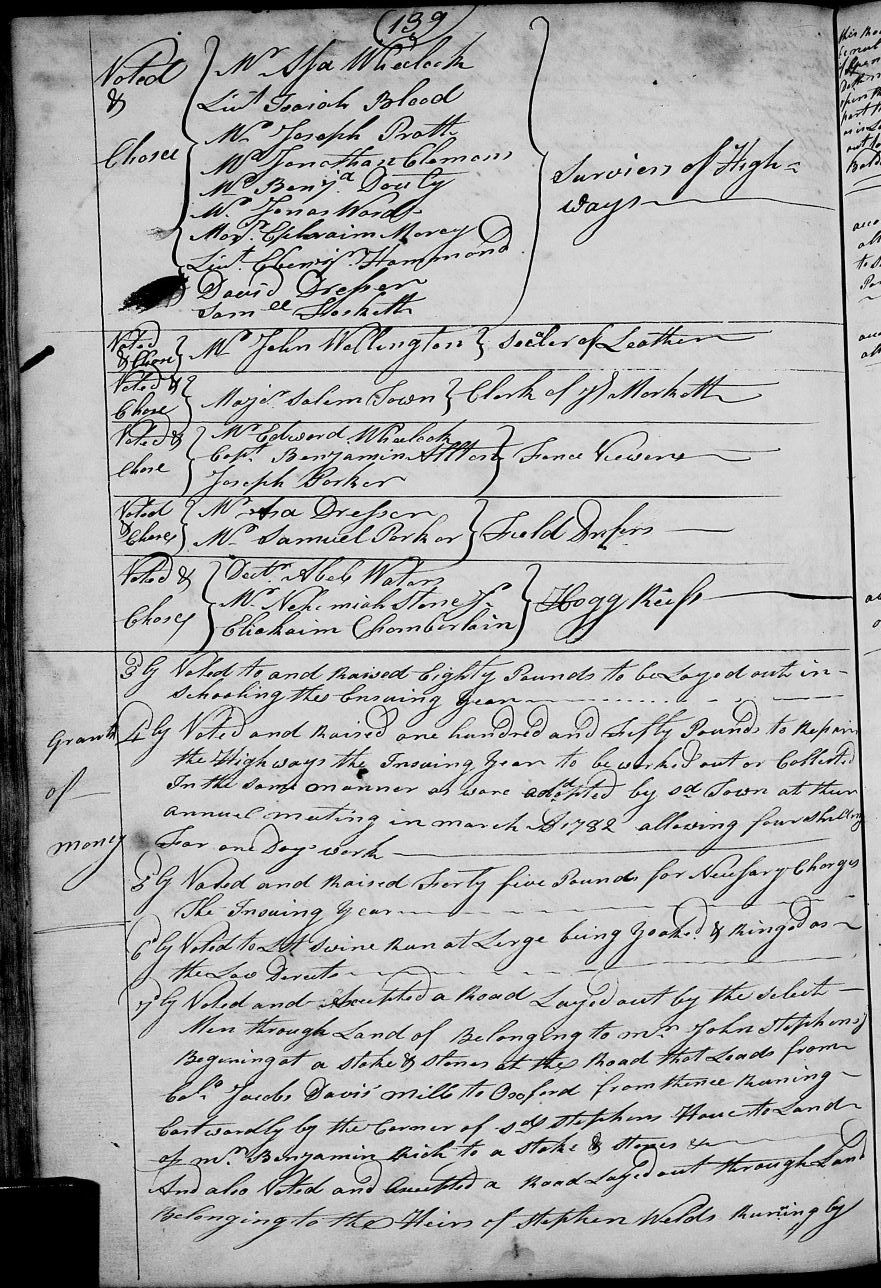 (139)
Voted & Chose
Mr Asa Wheelock
Liut Isaiah Blood
Mr Joseph Pratt
Mr Jonathan Clemons
Mr Benja Douty
Mr Jonas Ward
Majr Ephraim Morey
Liut Ebenr Hammond
David Dresser
Samll Hoskett
Surviers of High=
ways
Voted & Chose Mr John Wellington Sealer of Leather
Voted & Chose Majr Salem Town Clerk of ye Markett
Voted & Chose
Mr Edward Wheelock
Capt Benjamin Allton
Joseph Parker
Fence Viewers
Voted & Chose
Mr Asa Dresser
Mr Samuel Parker
Field Drifers
Voted & Chose
Doctr Abel Waters
Mr Nehemiah Stone Jr
Eliakaim Chamberlain
Hogg Reifs
3ly Voted to and Raised Eighty Pounds to be Layed out in
Schooling the Ensuing year
Grants of money
4ly Voted and Raised one hundred and Fifty Pounds to Repair
the Highways the Insuing Year to be worked out or Collected
In the same manner as ware adopted by sd Town at their
annuel meeting in march AD 1782 allowing four shilling
For one Days work
5ly Voted and Raised Forty five Pounds for Nessesary Charges
The Insuing Year
6ly Voted to Let swine Run at Lerge being Yoaked & Ringed as
the Law Directs
7ly Voted and Accepted a Road Layed out by the Select
Men through Land of Belonging to mr John Stephens
Begening at a stake & stones at the Road that Leads from
Colo Jacob Davis mills to Oxford from thence Runing
Eastwardly by the Corner of sds Stephens House to Land
of mr Benjamin Rich to a stake & stones &c
And also Voted and accepted a Road Layed out through Land
Belonging to the Heirs of Stephen Welds Runing by